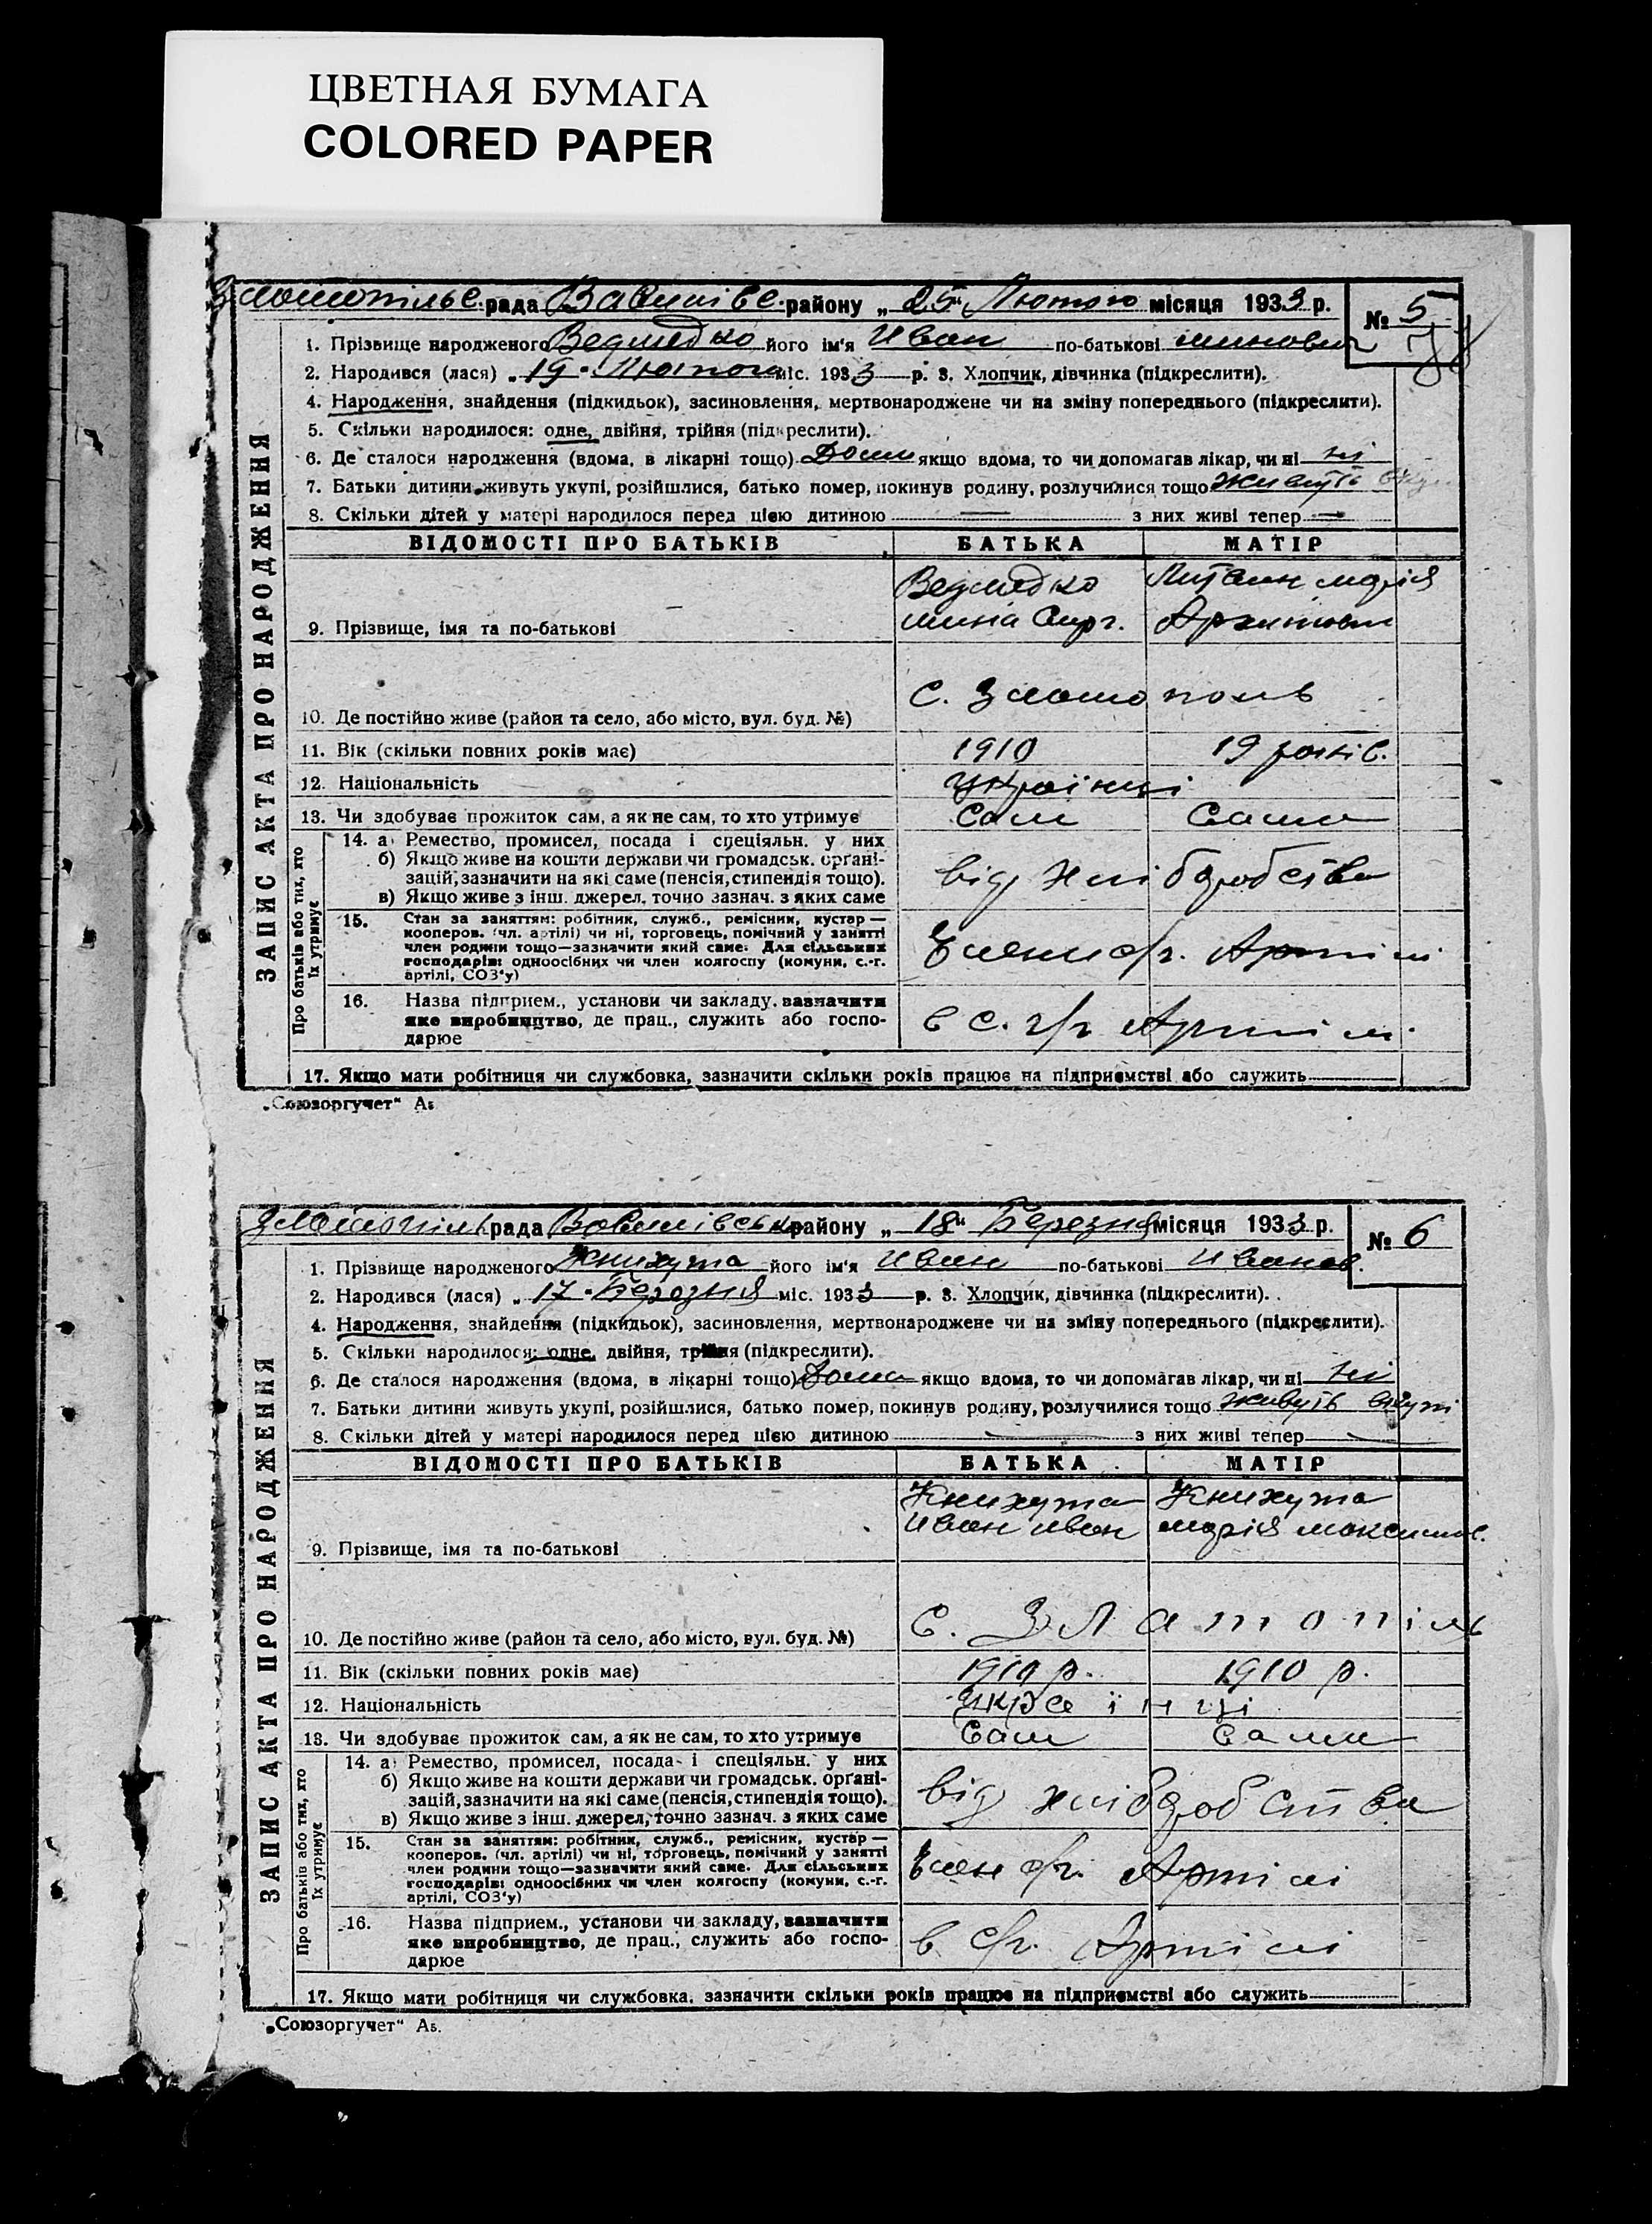 ЦВЕТНАЯ БУМАГА
COLORED PAPER
рада района „ 25 “ Лютого місяця 1933 р. № 5
1. Прізвище народженого Ведмедко його ім'я Иван по-батькові Минович
2. Народився (лася) „ 19 " Лютого міс. 1933 р. 3. Хлопчик, дівчинка (підкреслити).
4. Народження, знайдення (підкидьок), засиновлення, мертвонароджене чи на зміну попереднього (підкреслити).
5. Скільки народилося: одне, двійня, трійня (підкреслити).
6. Де сталося народження (вдома, в лікарні тощо) Дома якщо вдома, то чи допомагав лікар, чи ні ні
7. Батьки дитини живуть укупі, розійшлися, батько помер, покинув родину, розлучилися тощо живуть
8. Скільки дітей у матері народилося перед цією дитиною — з них живі тепер —
ЗАПИС АКТА ПРО НАРОДЖЕННЯ
ВІДОМОСТІ ПРО БАТЬКІВ БАТЬКА МАТІР
Ведмедко Литвин Марія
9. Прізвище, імя та по-батькові
10. Де постійно живе (район та село, або місто, вул. буд. №) с. Златополь
11. Вік (скільки повних років має) 1910 19 років.
12. Національність Українці
13. Чи здобуває прожиток сам, а як не сам, то хто утримує Сам Сама
Про батьків або тих, хто їх утримує
14. а) Ремество, промисел, посада і спеціяльн. у них
б) Якщо живе на кошти держави чи громадськ. органі-
зацій, зазначити на які саме (пенсія, стипендія тощо). від хліборобства
в) Якщо живе з інш. джерел, точно зазнач. з яких саме
15. Стан за заняттям: робітник, служб., ремісник, кустар —
кооперов. (чл. артілі) чи ні, торговець, помічний у занятті
член родини тощо—зазначити який саме. Для сільських
господарів: одноосібних чи член колгоспу (комуни, с.-г.
артілі, СОЗ'у) Члени с/г. Артілі
16. Назва підприєм., установи чи закладу, зазначити
яке виробництво, де прац., служить або госпо-
дарює в с. г/г Артілі
17. Якщо мати робітниця чи службовка, зазначити скільки років працює на підприємстві або служить
„Союзоргучет“ А5
Златопіль рада Вовчилівсько району „ 18 “ Березня місяця 1933 р. № 6
1. Прізвище народженого Книхута його ім'я Иван по-батькові Иванов.
2. Народився (лася) „ 17 " Березня міс. 1933 р. 3. Хлопчик, дівчинка (підкреслити).
4. Народження, знайдення (підкидьок), засиновлення, мертвонароджене чи на зміну попереднього (підкреслити).
5. Скільки народилося: одне, двійня, трійня (підкреслити).
6. Де сталося народження (вдома, в лікарні тощо) Дома якщо вдома, то чи допомагав лікар, чи ні ні
7. Батьки дитини живуть укупі, розійшлися, батько помер, покинув родину, розлучилися тощо живуть вкупі
8. Скільки дітей у матері народилося перед цією дитиною — з них живі тепер —
ЗАПИС АКТА ПРО НАРОДЖЕННЯ
ВІДОМОСТІ ПРО БАТЬКІВ БАТЬКА МАТІР
Книхута Книхута
Иван Иван Марія Максимов.
9. Прізвище, імя та по-батькові
10. Де постійно живе (район та село, або місто, вул. буд. №) С. Златопіль
11. Вік (скільки повних років має) 1910 р. 1910 р.
12. Національність Українці
13. Чи здобуває прожиток сам, а як не сам, то хто утримує Сам Сами
Про батьків або тих, хто їх утримує
14. а) Ремество, промисел, посада і спеціяльн. у них
б) Якщо живе на кошти держави чи громадськ. органі-
зацій, зазначити на які саме (пенсія, стипендія тощо). від хліборобства
в) Якщо живе з інш. джерел, точно зазнач. з яких саме
15. Стан за заняттям: робітник, служб., ремісник, кустар —
кооперов. (чл. артілі) чи ні, торговець, помічний у занятті
член родини тощо—зазначити який саме. Для сільських
господарів: одноосібних чи член колгоспу (комуни, с.-г.
артілі, СОЗ'у) Член с/г. Артілі
16. Назва підприєм., установи чи закладу, зазначити
яке виробництво, де прац., служить або госпо-
дарює в с/г. Артілі
17. Якщо мати робітниця чи службовка, зазначити скільки років працює на підприємстві або служить
„Союзоргучет“ А5.